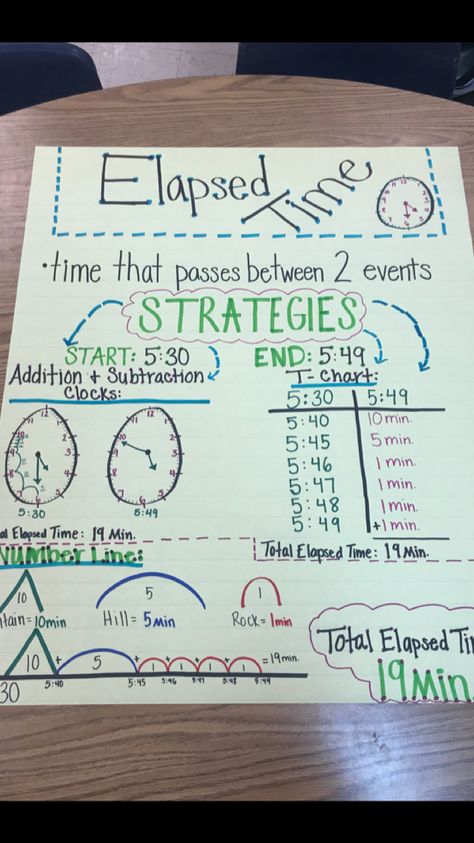 Elapsed Time
•time that passes between 2 events
STRATEGIES
START: 5:30 END: 5:49
Addition + Subtraction
Clocks:
5:30
5:49
Elapsed Time: 19 Min.
T-Chart:
5:30 5:49
5:40 10 min.
5:45 5 min.
5:46 1 min.
5:47 1 min.
5:48 1 min.
5:49 +1 min.
Total Elapsed Time: 19 Min.
Number Line:
10
5
1
tain=10min
Hill= 5Min
Rock= 1min
10 + 5 + 1 + 1 + 1 + 1 =19min.
30 5:40 5:45 5:46 5:47 5:48 5:49
Total Elapsed Ti
19Min